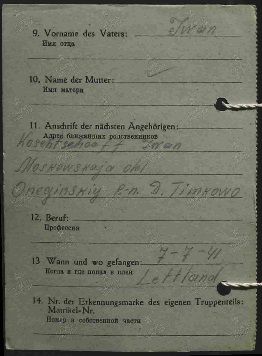 9. Vorname des Vaters: Iwan
Имя отца
10. Name der Mutter:
Имя матери
11. Anschrift der nächsten Angehörigen:
Адрес ближайших родственников
Iwan
Moskowskaja obl
Oneginskiy r-n. D. Timkowo
12. Beruf:
Профессия
13 Wann und wo gefangen: 7-7-41
Когда и где попал в плен Lettland
14. Nr. der Erkennungsmarke des eigenen Truppenteils:
Matrikel-Nr.
Номер в собственной части